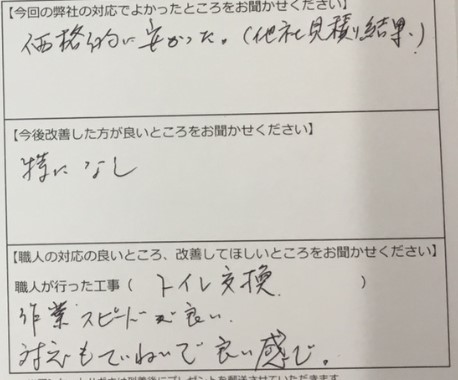 【今回の弊社の対応でよかったところをお聞かせください】
価格的に安かった。(他社見積り結果)
【今後改善した方が良いところをお聞かせください】
特になし
【職人の対応の良いところ、改善してほしいところをお聞かせください】
職人が行った工事( トイレ交換 )
作業スピードが良い
対応もていねいで良い感じ。